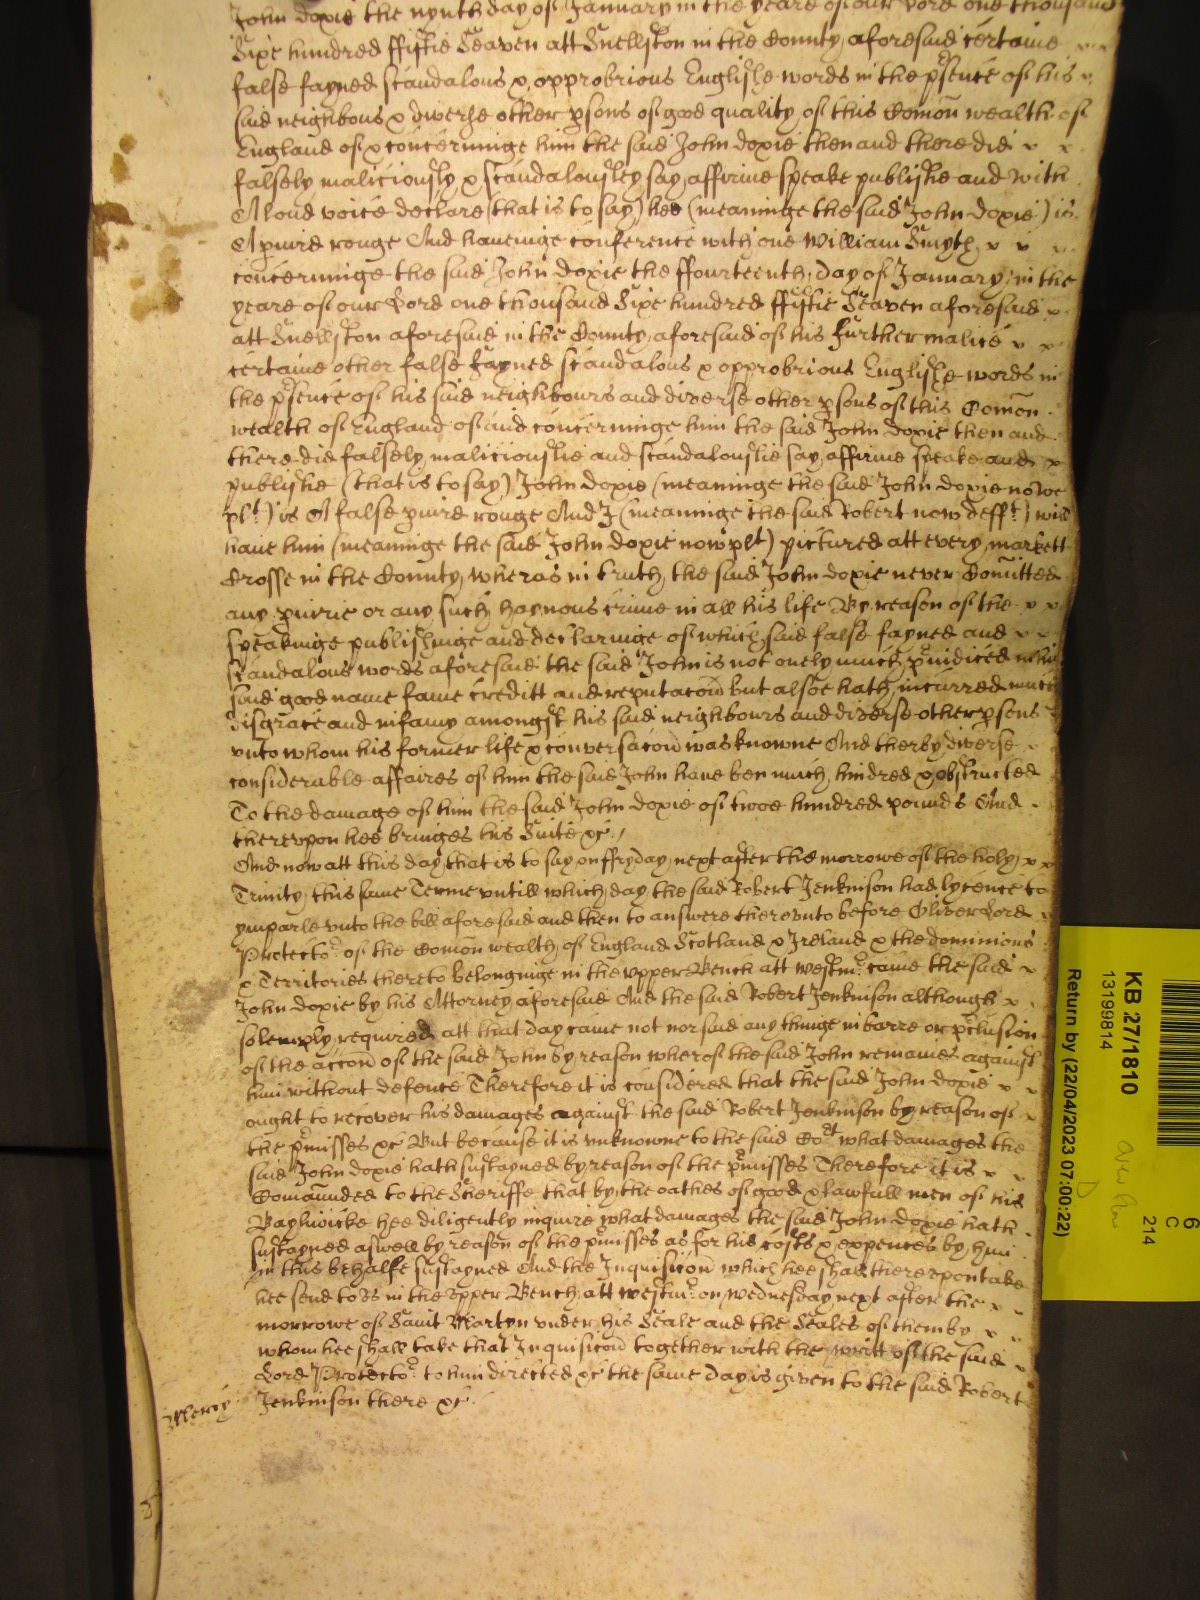 John Doxie the nynth day of January in the yeare of our Lord one thousand
Sixe hundred ffiftie Seaven att Snellston in the County aforesaid certaine
false fayned scandalous & opprobrious Englishe words in the psence of his
said neighbours & diverse other psons of good quality of this Comon wealth of
England of & concerninge him the said John Doxie then and there did
falsely maliciously & scandalousley say affirme speake publishe and with
A loud voice declare (that is to say) hee (meaninge the said John Doxie) is
A piurd rouge And haveinge conference with one William Smyth
concerninge the said John Doxie the ffourteenth day of January in the
yeare of our Lord one thousand Sixe hundred ffiftie Seaven aforesaid
att Snellston aforesaid in the County aforesaid of his further malice
certaine other false fayned scandalous & opprobrious Englishe words in
the psence of his said neighbours and diverse other psons of this Comon
wealth of England of and concerninge him the said John Doxie then and
there did falsely maliciouslie and scandalouslie say affirme speake and
publishe (that is to say) John Doxie (meaninge the said John Doxie nowe
plt) is A false piurd rouge And I (meaninge the said Robert now defft) will
have him (meaninge the said John Doxie now plt) pictured att every markett
Crosse in the County wheras in truth the said John Doxie never Comitted
any piurie or any such haynous crime in all his life By reason of the
speakinge publishinge and declaringe of which said false fayned and
scandalous words aforesaid the said John is not onely much piudiced in his
said good name fame creditt and reputacon but alsoe hath incurred much
disgrace and infamy amongst his said neighbours and diverse other psons
unto whom his former life & conversacon was knowne And therby diverse
considerable affaires of him the said John have ben much hindred & obstructed
To the damage of him the said John Doxie of twoe hundred pounds And
thereupon hee bringes his Suite &c
And now att this day that is to say on ffryday next after the morrowe of the holy
Trinity this same Terme untill which day the said Robert Jenkinson had lycence to
ymparle unto the bill aforesaid and then to answere thereunto before Oliver Lord
Protector of the Comon wealth of England Scotland & Ireland & the dominions
& Territories thereto belonginge in the upper Bench att Westmr came the said
John Doxie by his Attorney aforesaid And the said Robert Jenkinson although
solemply required att that day came not nor said any thinge in barre or pclusion
of the accon of the said John by reason wherof the said John remaines against
him without defence Therefore it is considered that the said John Doxie
ought to recover his damages against the said Robert Jenkinson by reason of
the pmisses &c But because it is unknowne to the said Cort what damages the
said John Doxie hath sustayned by reason of the pmisses Therefore it is
Comaunded to the Sheriffe that by the oathes of good & lawfull men of his
Baylwicke hee diligently inquire what damages the said John Doxie hath
sustayned aswell by reason of the pmisses as for his costs & expences by him
in this behalfe sustayned And the Inquisicon which hee shall thereupon take
hee send to us in the upper Bench att Westmr on Wednesday next after the
morrowe of Saint Martyn under his Seale and the Seales of them by
whom hee shall take that Inquisicon together with the writt of the said
Lord Protector to him directed &c the same day is given to the said Robert
Jenkinson there &c
KB 27/1810
13199814
Return by (22/04/2023 07:00:22)
6
C
214